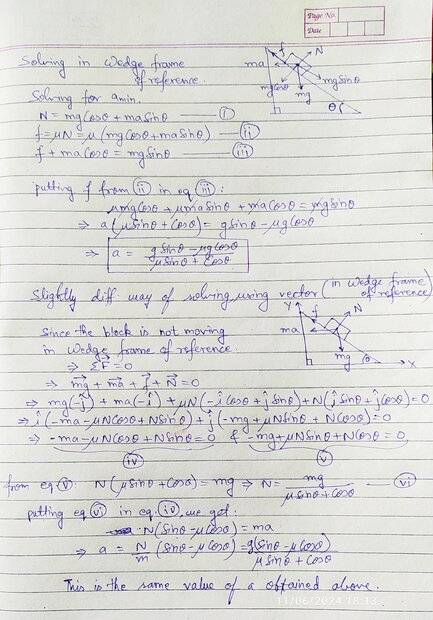 Page No.
Date
Solving in Wedge frame
of reference.
f N
ma
mg sinθ
mg cosθ
mg
θ
Solving for amin.
N = mg cosθ + ma sinθ —— (i)
f = μN = μ(mg cosθ + ma sinθ) —— (ii)
f + ma cosθ = mg sinθ —— (iii)
putting f from (ii) in eq (iii):
μmg cosθ + μma sinθ + ma cosθ = mg sinθ
⇒ a(μ sinθ + cosθ) = g sinθ - μg cosθ
⇒ a = (g sinθ - μg cosθ)/(μ sinθ + cosθ)
Slightly diff way of solving using vector (in Wedge frame
of reference)
Y f N
ma
mg
θ X
Since the block is not moving
in Wedge frame of reference
⇒ ΣF⃗ = 0
⇒ mg⃗ + ma⃗ + f⃗ + N⃗ = 0
⇒ mg(-ĵ) + ma(-î) + μN(-î cosθ + ĵ sinθ) + N(î sinθ + ĵ cosθ) = 0
⇒ î(-ma - μN cosθ + N sinθ) + ĵ(-mg + μN sinθ + N cosθ) = 0
⇒ -ma - μN cosθ + N sinθ = 0 & -mg + μN sinθ + N cosθ = 0
(iv) (v)
from eq (v): N(μ sinθ + cosθ) = mg ⇒ N = mg/(μ sinθ + cosθ) —— (vi)
putting eq (vi) in eq. (iv), we get:
N(sinθ - μ cosθ) = ma
⇒ a = N/m (sinθ - μ cosθ) = g(sinθ - μ cosθ)/(μ sinθ + cosθ)
This is the same value of a obtained above.
11/06/2024 18:13